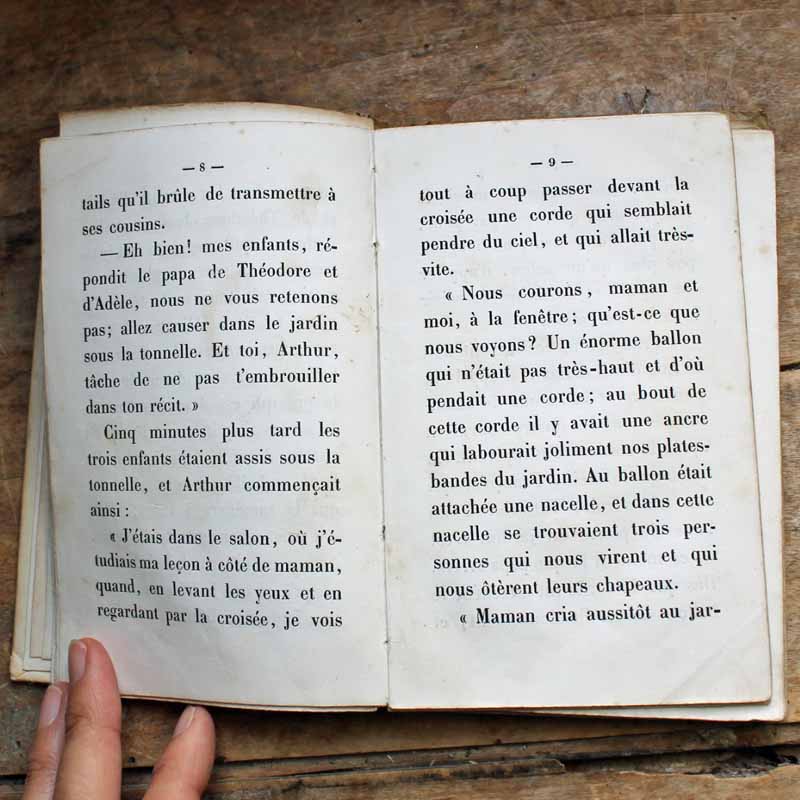 — 8 —
tails qu'il brûle de transmettre à
ses cousins.
— Eh bien! mes enfants, ré-
pondit le papa de Théodore et
d'Adèle, nous ne vous retenons
pas; allez causer dans le jardin
sous la tonnelle. Et toi, Arthur,
tâche de ne pas t'embrouiller
dans ton récit. »
Cinq minutes plus tard les
trois enfants étaient assis sous la
tonnelle, et Arthur commençait
ainsi :
« J'étais dans le salon, où j'é-
tudiais ma leçon à côté de maman,
quand, en levant les yeux et en
regardant par la croisée, je vois
— 9 —
tout à coup passer devant la
croisée une corde qui semblait
pendre du ciel, et qui allait très-
vite.
« Nous courons, maman et
moi, à la fenêtre; qu'est-ce que
nous voyons? Un énorme ballon
qui n'était pas très-haut et d'où
pendait une corde; au bout de
cette corde il y avait une ancre
qui labourait joliment nos plates-
bandes du jardin. Au ballon était
attachée une nacelle, et dans cette
nacelle se trouvaient trois per-
sonnes qui nous virent et qui
nous ôtèrent leurs chapeaux.
« Maman cria aussitôt au jar-